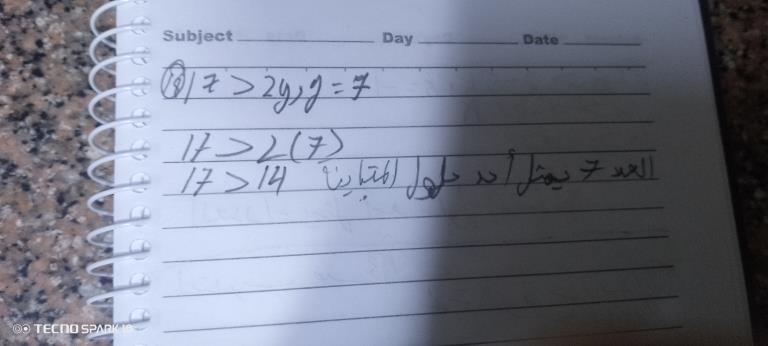 Subject Day Date
13) 17 > 2y, y = 7
17 > 2(7)
17 > 14 العدد 7 يمثل أحد حلول المتباينة
TECNO SPARK